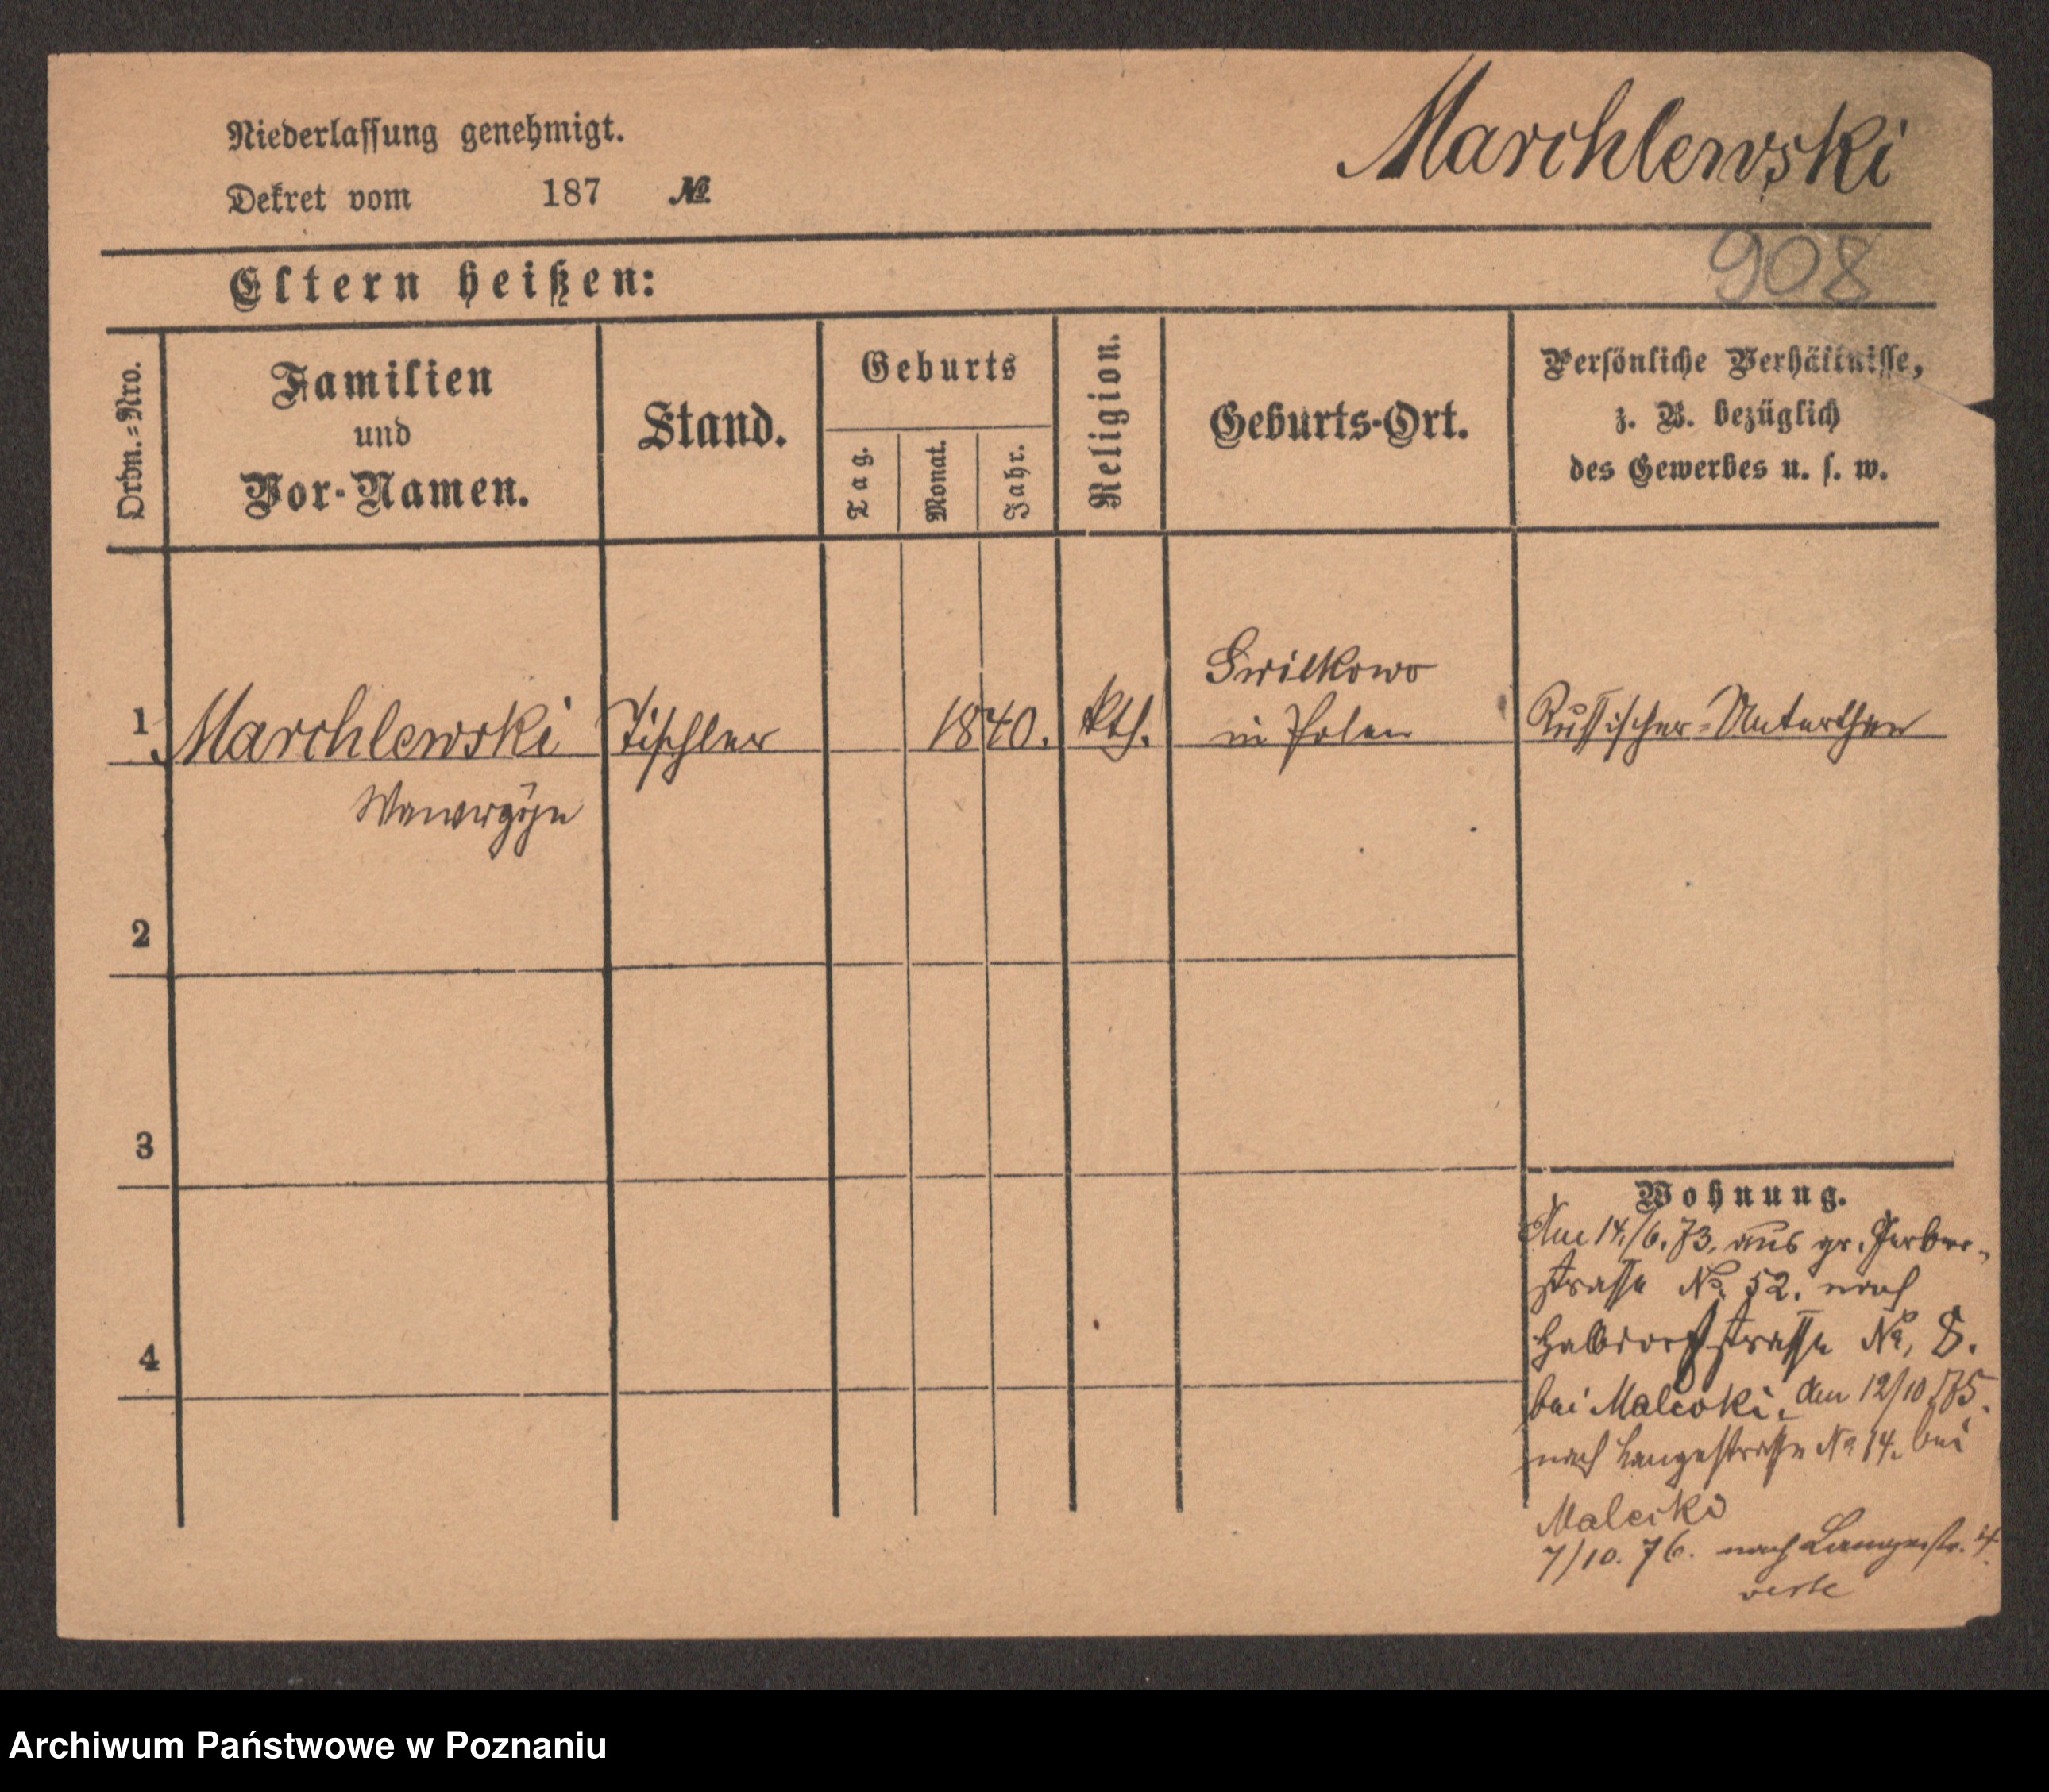 Niederlassung genehmigt.
Dekret vom 187 №
Marchlewski
908
Eltern heißen:
Ordn.=Nro.
Familien
und
Vor-Namen.
Stand.
Geburts
Tag.
Monat.
Jahr.
Religion.
Geburts-Ort.
Persönliche Verhältnisse,
z. B. bezüglich
des Gewerbes u. s. w.
1 Marchlewski Tischler 1840. kth.
in Polen
Russischer-Unterthan
2
3
4
Wohnung.
Am 14./6. 73. aus gr. Gerber-
strasse No. 52. nach
Halbdorfstrasse No. 8.
bei Den 12/10 75.
nach Langestrasse No 14. bei
Malecki
7/10. 76. nach Langestr. 4.
verte
Archiwum Państwowe w Poznaniu